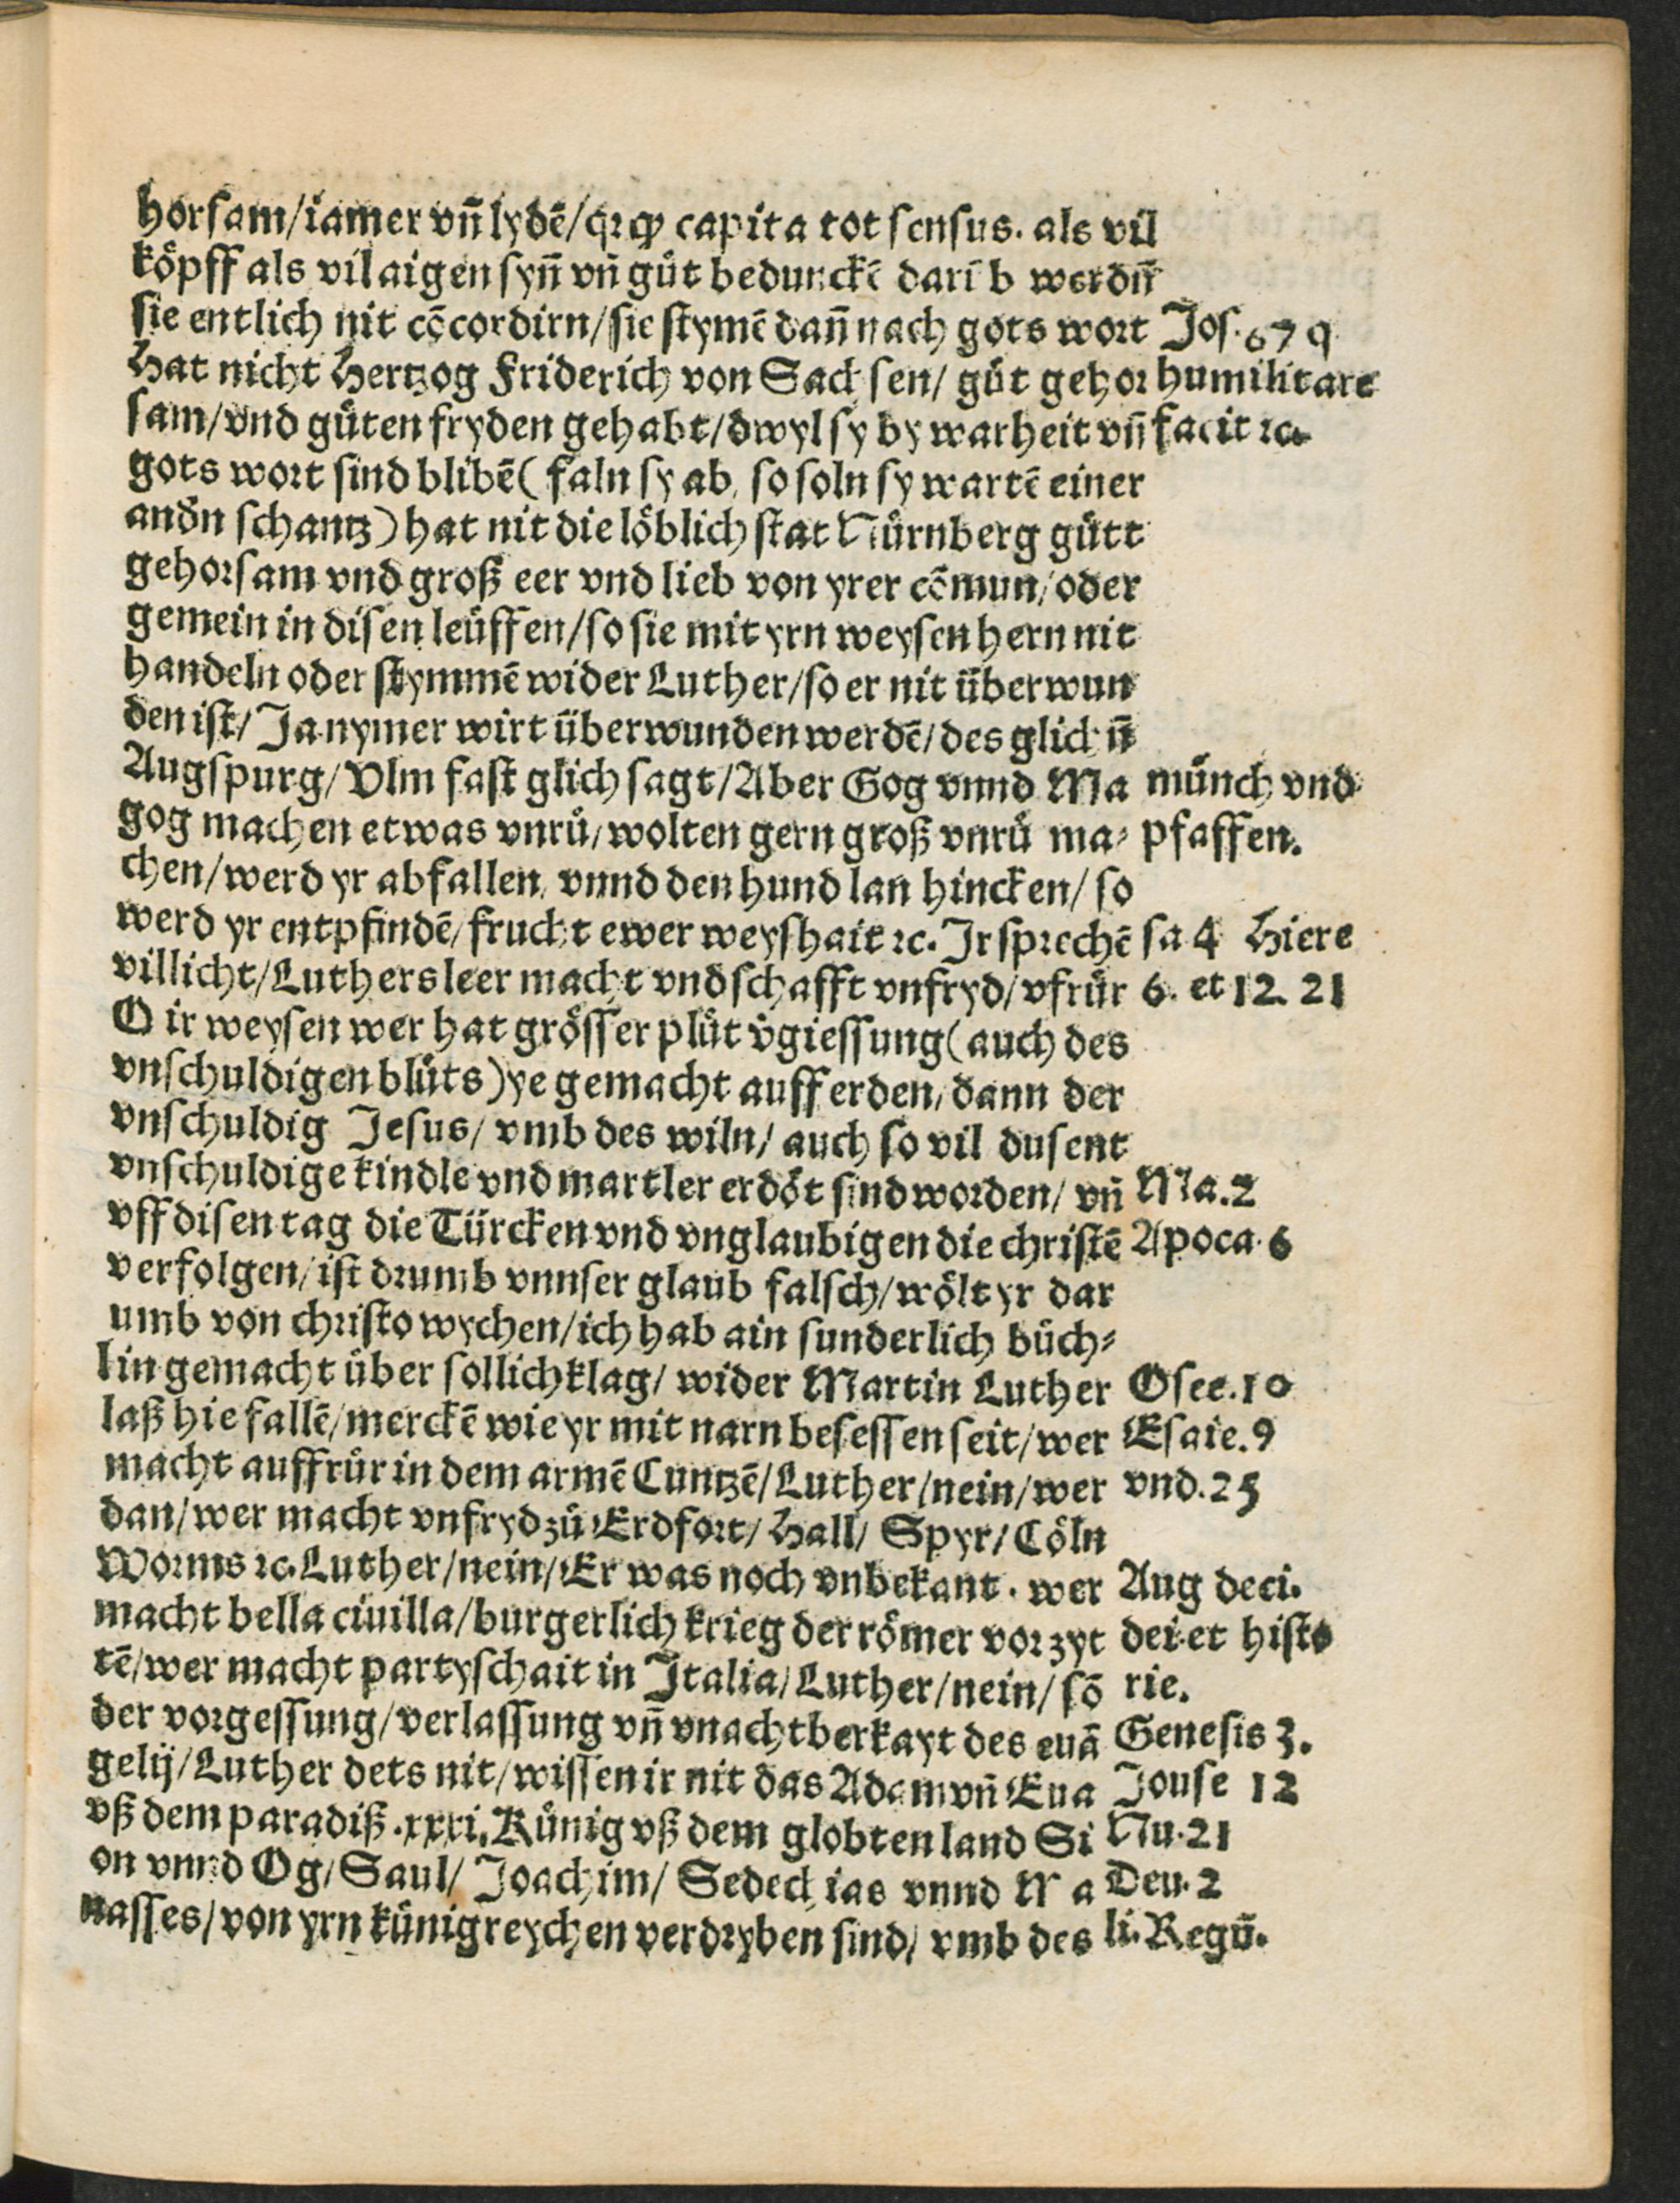 horsam/iamer vn̄ lydē/qꝛ qꝫ capita tot sensus. als vil
köpff als vil aigen syn̄ vn̄ gůt beduncke̅ darūb werdn̄
sie entlich nit cōcordirn/sie stymē dan̄ nach gots wort Jos. 6 7 9
Hat nicht Hertzog Friderich von Sachsen/ gůt gehor humilitare
sam/vnd gůten fryden gehabt/dwyl sy by warheit vn̄ facit ꝛc.
gots wort sind blibē( faln sy ab, so soln sy wartē einer
andn̄ schantz) hat nit die löblich stat Nürnberg gůtt
gehorsam vnd groß eer vnd lieb von yrer cōmun/oder
gemein in disen leüffen/so sie mit yrn weysen hern nit
handeln oder stymmē wider Luther/so er nit überwun
den ist/ Ja nymer wirt überwunden werdē/des glichn̄
Augspurg/Vlm fast glich sagt/Aber Gog vnnd Ma münch vnd
gog machen etwas vnrů/wolten gern groß vnrů ma⸗ pfaffen.
chen/werd yr abfallen, vnnd den hund lan hincken/ so
werd yr entpfindē/frucht ewer weyshait ꝛc. Ir sprechē sa 4 Hiere
villicht/Luthers leer macht vnd schafft vnfryd/vfrůr 6. et 12. 21
O ir weysen wer hat grösser plůt v̄giessung(auch des
vnschuldigen blůts)ye gemacht auff erden, dann der
vnschuldig Jesus/ vmb des wiln/ auch so vil dusent
vnschuldige kindle vnd martler erdöt sind worden/ vn̄ Ma.2
vff disen tag die Türcken vnd vnglaubigen die christē Apoca. 6
verfolgen/ist drumb vnnser glaub falsch/wölt yr dar
umb von christo wychen/ich hab ain sunderlich büch⸗
lin gemacht über sollich klag/ wider Martin Luther Osee.10
laß hie fallē/merckē wie yr mit narn besessen seit/wer Esaie.9
macht auffrůr in dem armē Cuntzē/Luther/nein/wer vnd.25
dan/wer macht vnfryd zů Erdfort/ Hall/ Spyr/ Cöln
Worms ꝛc. Luther/nein/Er was noch vnbekant. wer Aug deci.
macht bella ciuilla/burgerlich krieg der römer vor zyt dei et histo
tē/wer macht partyschait in Italia/Luther/nein/ sō rie.
der vorgessung/verlassung vn̄ vnachtberkayt des euā Genesis 3.
gelij/Luther dets nit/wissen ir nit das Adam vn̄ Eua Jouse 12
vß dem paradiß .xxxi. Künig vß dem globten land Si Nu.21
on vnnd Og/ Saul/ Joachim/ Sedechias vnnd Ma Deu.2
nasses/von yrn künigreychen verdryben sind/ vmb des li. Regū.